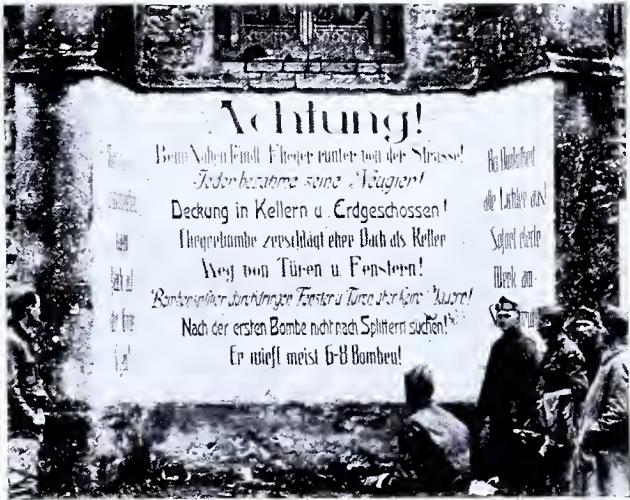 Achtung!
Beim Nahen feindl. Flieger runter von der Strasse!
Jeder bezähme seine Neugier!
Deckung in Kellern u. Erdgeschossen!
Fliegerbombe zerschlägt eher Dach als Keller
Weg von Türen u. Fenstern!
Bombensplitter durchdringen Fenster u. Türen aber keine Mauern!
Nach der ersten Bombe nicht nach Splittern suchen!
Er wirft meist 6-8 Bomben!
Bei Dunkelheit
alle Lichter aus!
Sofort